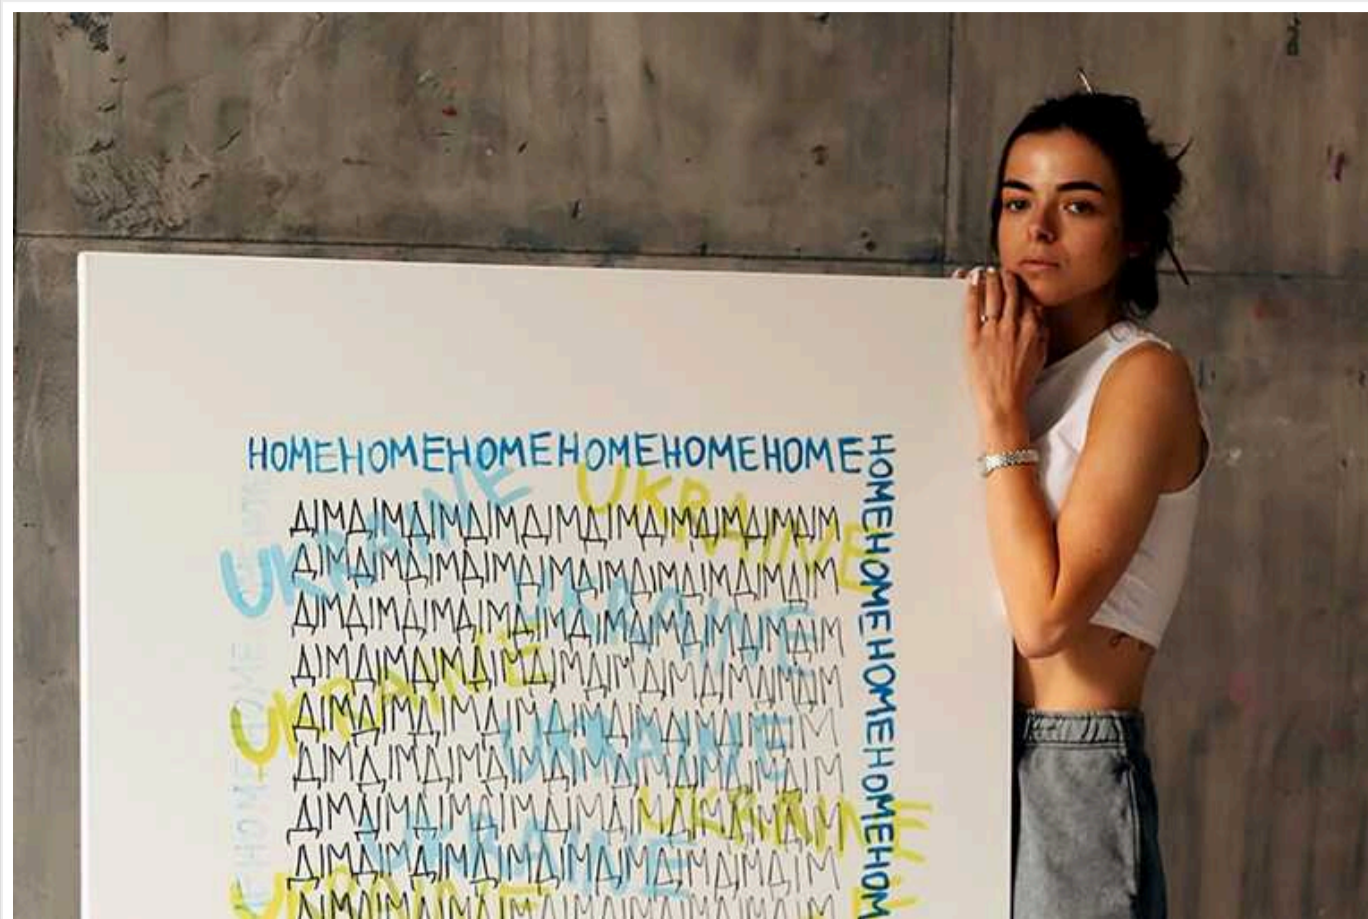 HOMEHOMEHOMEHOMEHOMEHOME
HOMEHOMEHOMEHOMEHOM
ДІМДІМДІМДІМДІМДІМДІМДІМДІМДІМ
ДІМДІМДІМДІМДІМДІМДІМДІМДІМДІМ
ДІМДІМДІМДІМДІМДІМДІМДІМДІМДІМ
ДІМДІМДІМДІМДІМДІМДІМДІМДІМДІМ
ДІМДІМДІМДІМДІМДІМДІМДІМДІМДІМ
ДІМДІМДІМДІМДІМДІМДІМДІМДІМДІМ
ДІМДІМДІМДІМДІМДІМДІМДІМДІМДІМ
ДІМДІМДІМДІМДІМДІМДІМДІМДІМДІМ
ДІМДІМДІМДІМДІМДІМДІМДІМДІМДІМ
UKRAINE
UKRAINE
UKRAINE
UKRAINE
UKRAINE
UKRAINE
UKRAINE
UKRAINE